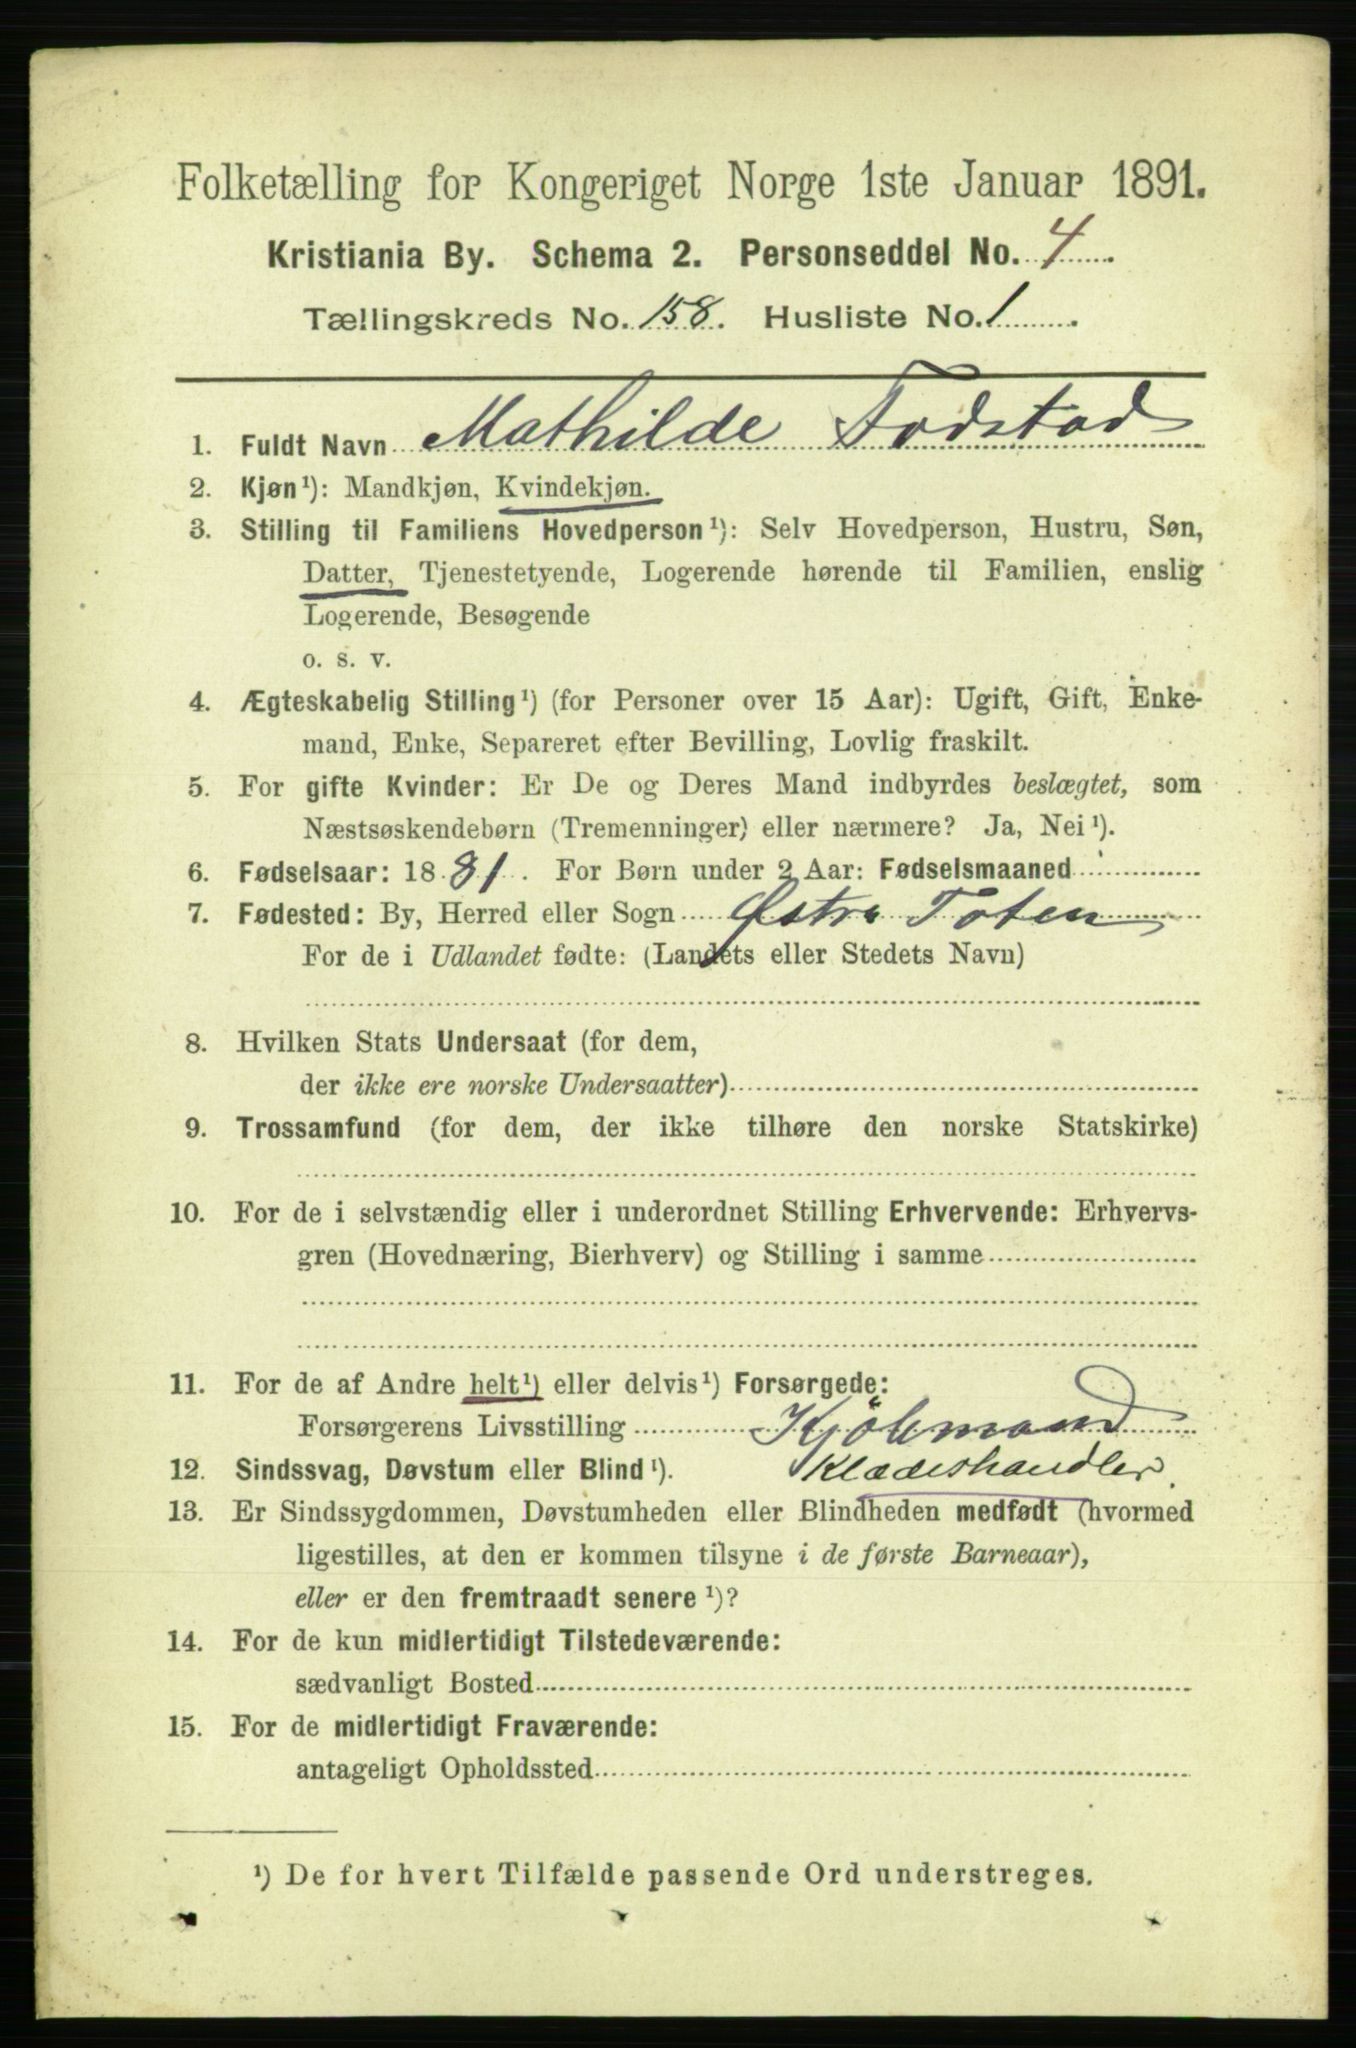 Folketælling for Kongeriget Norge 1ste Januar 1891.
Kristiania By. Schema 2. Personseddel No. 4
Tællingskreds No. 158. Husliste No. 1.
1. Fuldt Navn Mathilde Fodstad
2. Kjøn¹): Mandkjøn, Kvindekjøn.
3. Stilling til Familiens Hovedperson¹): Selv Hovedperson, Hustru, Søn,
Datter, Tjenestetyende, Logerende hørende til Familien, enslig
Logerende, Besøgende
o. s. v.
4. Ægteskabelig Stilling¹) (for Personer over 15 Aar): Ugift, Gift, Enke-
mand, Enke, Separeret efter Bevilling, Lovlig fraskilt.
5. For gifte Kvinder: Er De og Deres Mand indbyrdes beslægtet, som
Næstsøskendebørn (Tremenninger) eller nærmere? Ja, Nei¹).
6. Fødselsaar: 1881. For Børn under 2 Aar: Fødselsmaaned
7. Fødested: By, Herred eller Sogn Østre Toten
For de i Udlandet fødte: (Landets eller Stedets Navn)
8. Hvilken Stats Undersaat (for dem,
der ikke ere norske Undersaatter)
9. Trossamfund (for dem, der ikke tilhøre den norske Statskirke)
10. For de i selvstændig eller i underordnet Stilling Erhvervende: Erhvervs-
gren (Hovednæring, Bierhverv) og Stilling i samme
11. For de af Andre helt¹) eller delvis¹) Forsørgede:
Forsørgerens Livsstilling Kjöbmand
12. Sindssvag, Døvstum eller Blind¹). Klædeshandler.
13. Er Sindssygdommen, Døvstumheden eller Blindheden medfødt (hvormed
ligestilles, at den er kommen tilsyne i de første Barneaar),
eller er den fremtraadt senere¹)?
14. For de kun midlertidigt Tilstedeværende:
sædvanligt Bosted
15. For de midlertidigt Fraværende:
antageligt Opholdssted
¹) De for hvert Tilfælde passende Ord understreges.